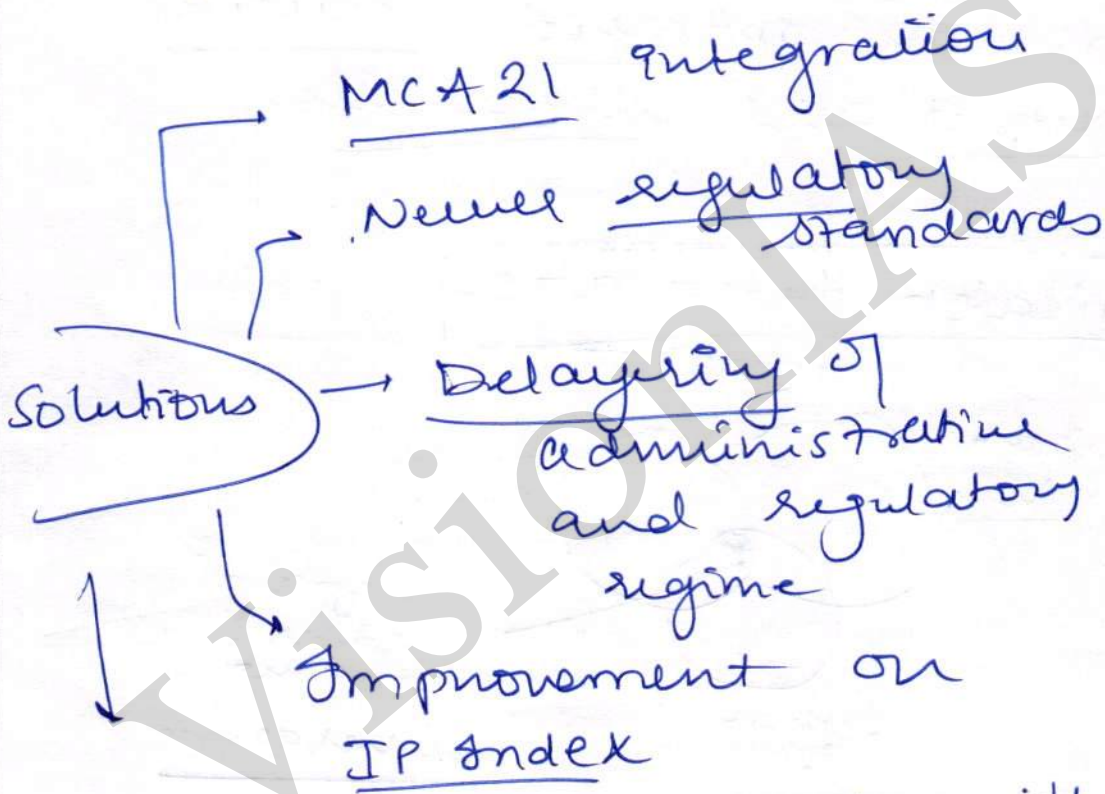 MCA21 integration
Newer regulatory
standards
Solutions
Delayering of
administrative
and regulatory
regime
Improvement on
IP Index
VisionIAS